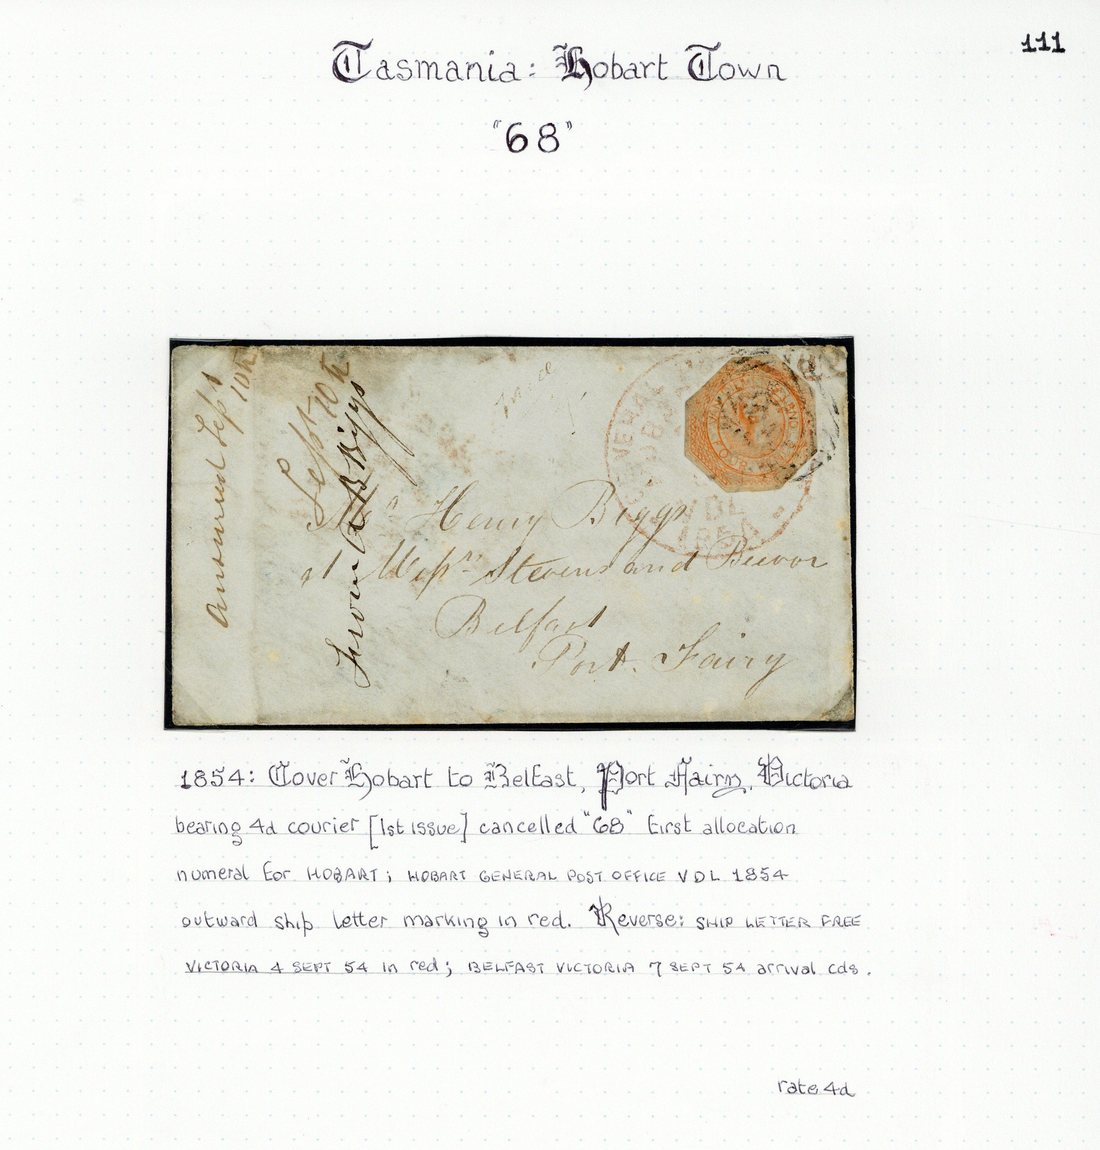 111
Tasmania: Hobart Town
"68"
Answered Sept 10th
Sept 10th
From A B Biggs
Paid
Henry Biggs
at Messrs Stevens and Beevor
Belfast
Port. Fairy
VDL
1854
1854: Cover Hobart to Belfast, Port Fairy, Victoria
bearing 4d courier [1st issue] cancelled "68" first allocation
numeral for HOBART; HOBART GENERAL POST OFFICE VDL 1854
outward ship letter marking in red. Reverse: SHIP LETTER FREE
VICTORIA 4 SEPT 54 in red; BELFAST VICTORIA 7 SEPT 54 arrival cds.
rate 4d